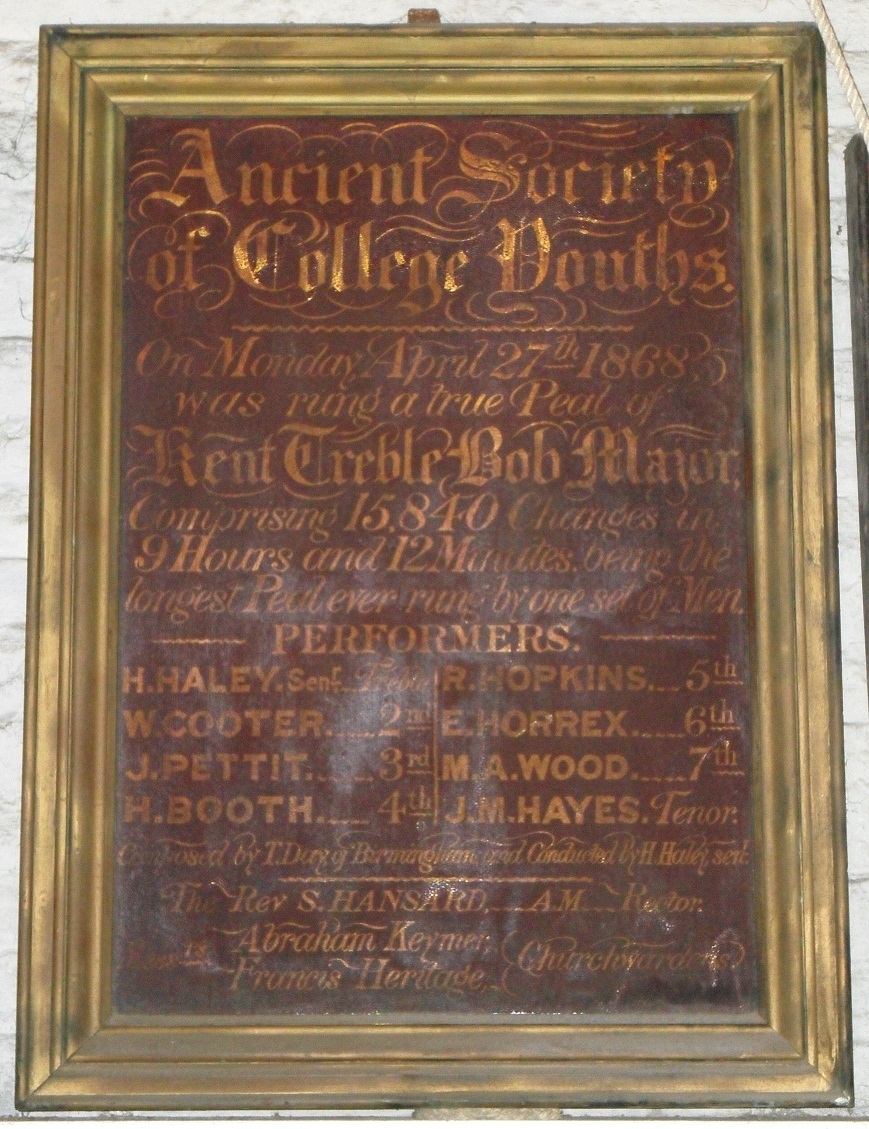 Ancient Society
of College Youths.
On Monday, April 27th 1868,
was rung a true Peal of
Kent Treble Bob Major,
Comprising 15,840 Changes in
9 Hours and 12 Minutes, being the
longest Peal ever rung by one set of Men.
PERFORMERS.
H. HALEY. Senr. Treble R. HOPKINS. 5th
W. COOTER. 2nd E. HORREX. 6th
J. PETTIT. 3rd M.A. WOOD. 7th
H. BOOTH. 4th J.M. HAYES. Tenor.
Composed by T. Day of Birmingham and Conducted by H. Haley, senr.
The Rev S. HANSARD, A.M. Rector.
Abraham Keymer,
Francis Heritage, Churchwardens.